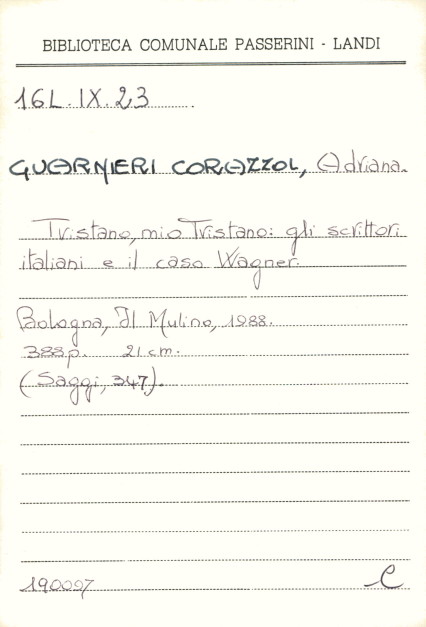 BIBLIOTECA COMUNALE PASSERINI - LANDI
16L.IX.23
GUARNIERI CORAZZOL, Adriana.
Tristano, mio Tristano: gli scrittori
italiani e il caso Wagner.
Bologna, Il Mulino, 1988.
388p. 21 cm.
(Saggi, 347).
190007 C